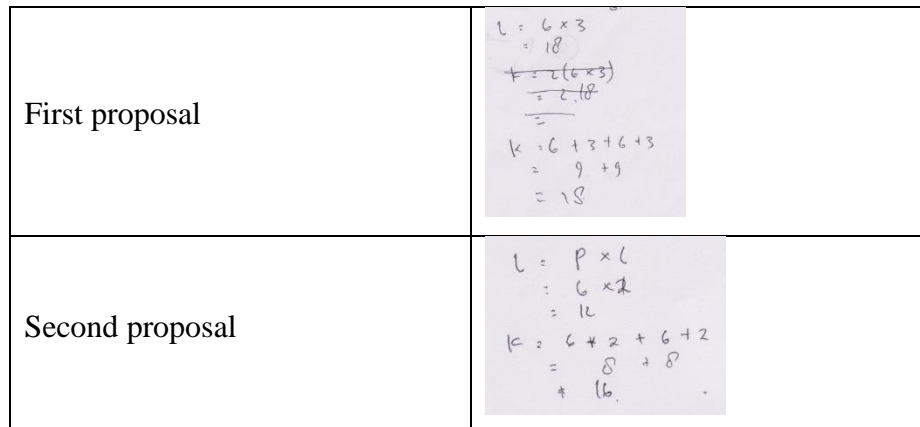 First proposal
L = 6 × 3
= 18
k = 2(6 × 3)
= 2.18
=
k = 6 + 3 + 6 + 3
= 9 + 9
= 18
Second proposal
L = P × l
= 6 × 2
= 12
k = 6 + 2 + 6 + 2
= 8 + 8
= 16.